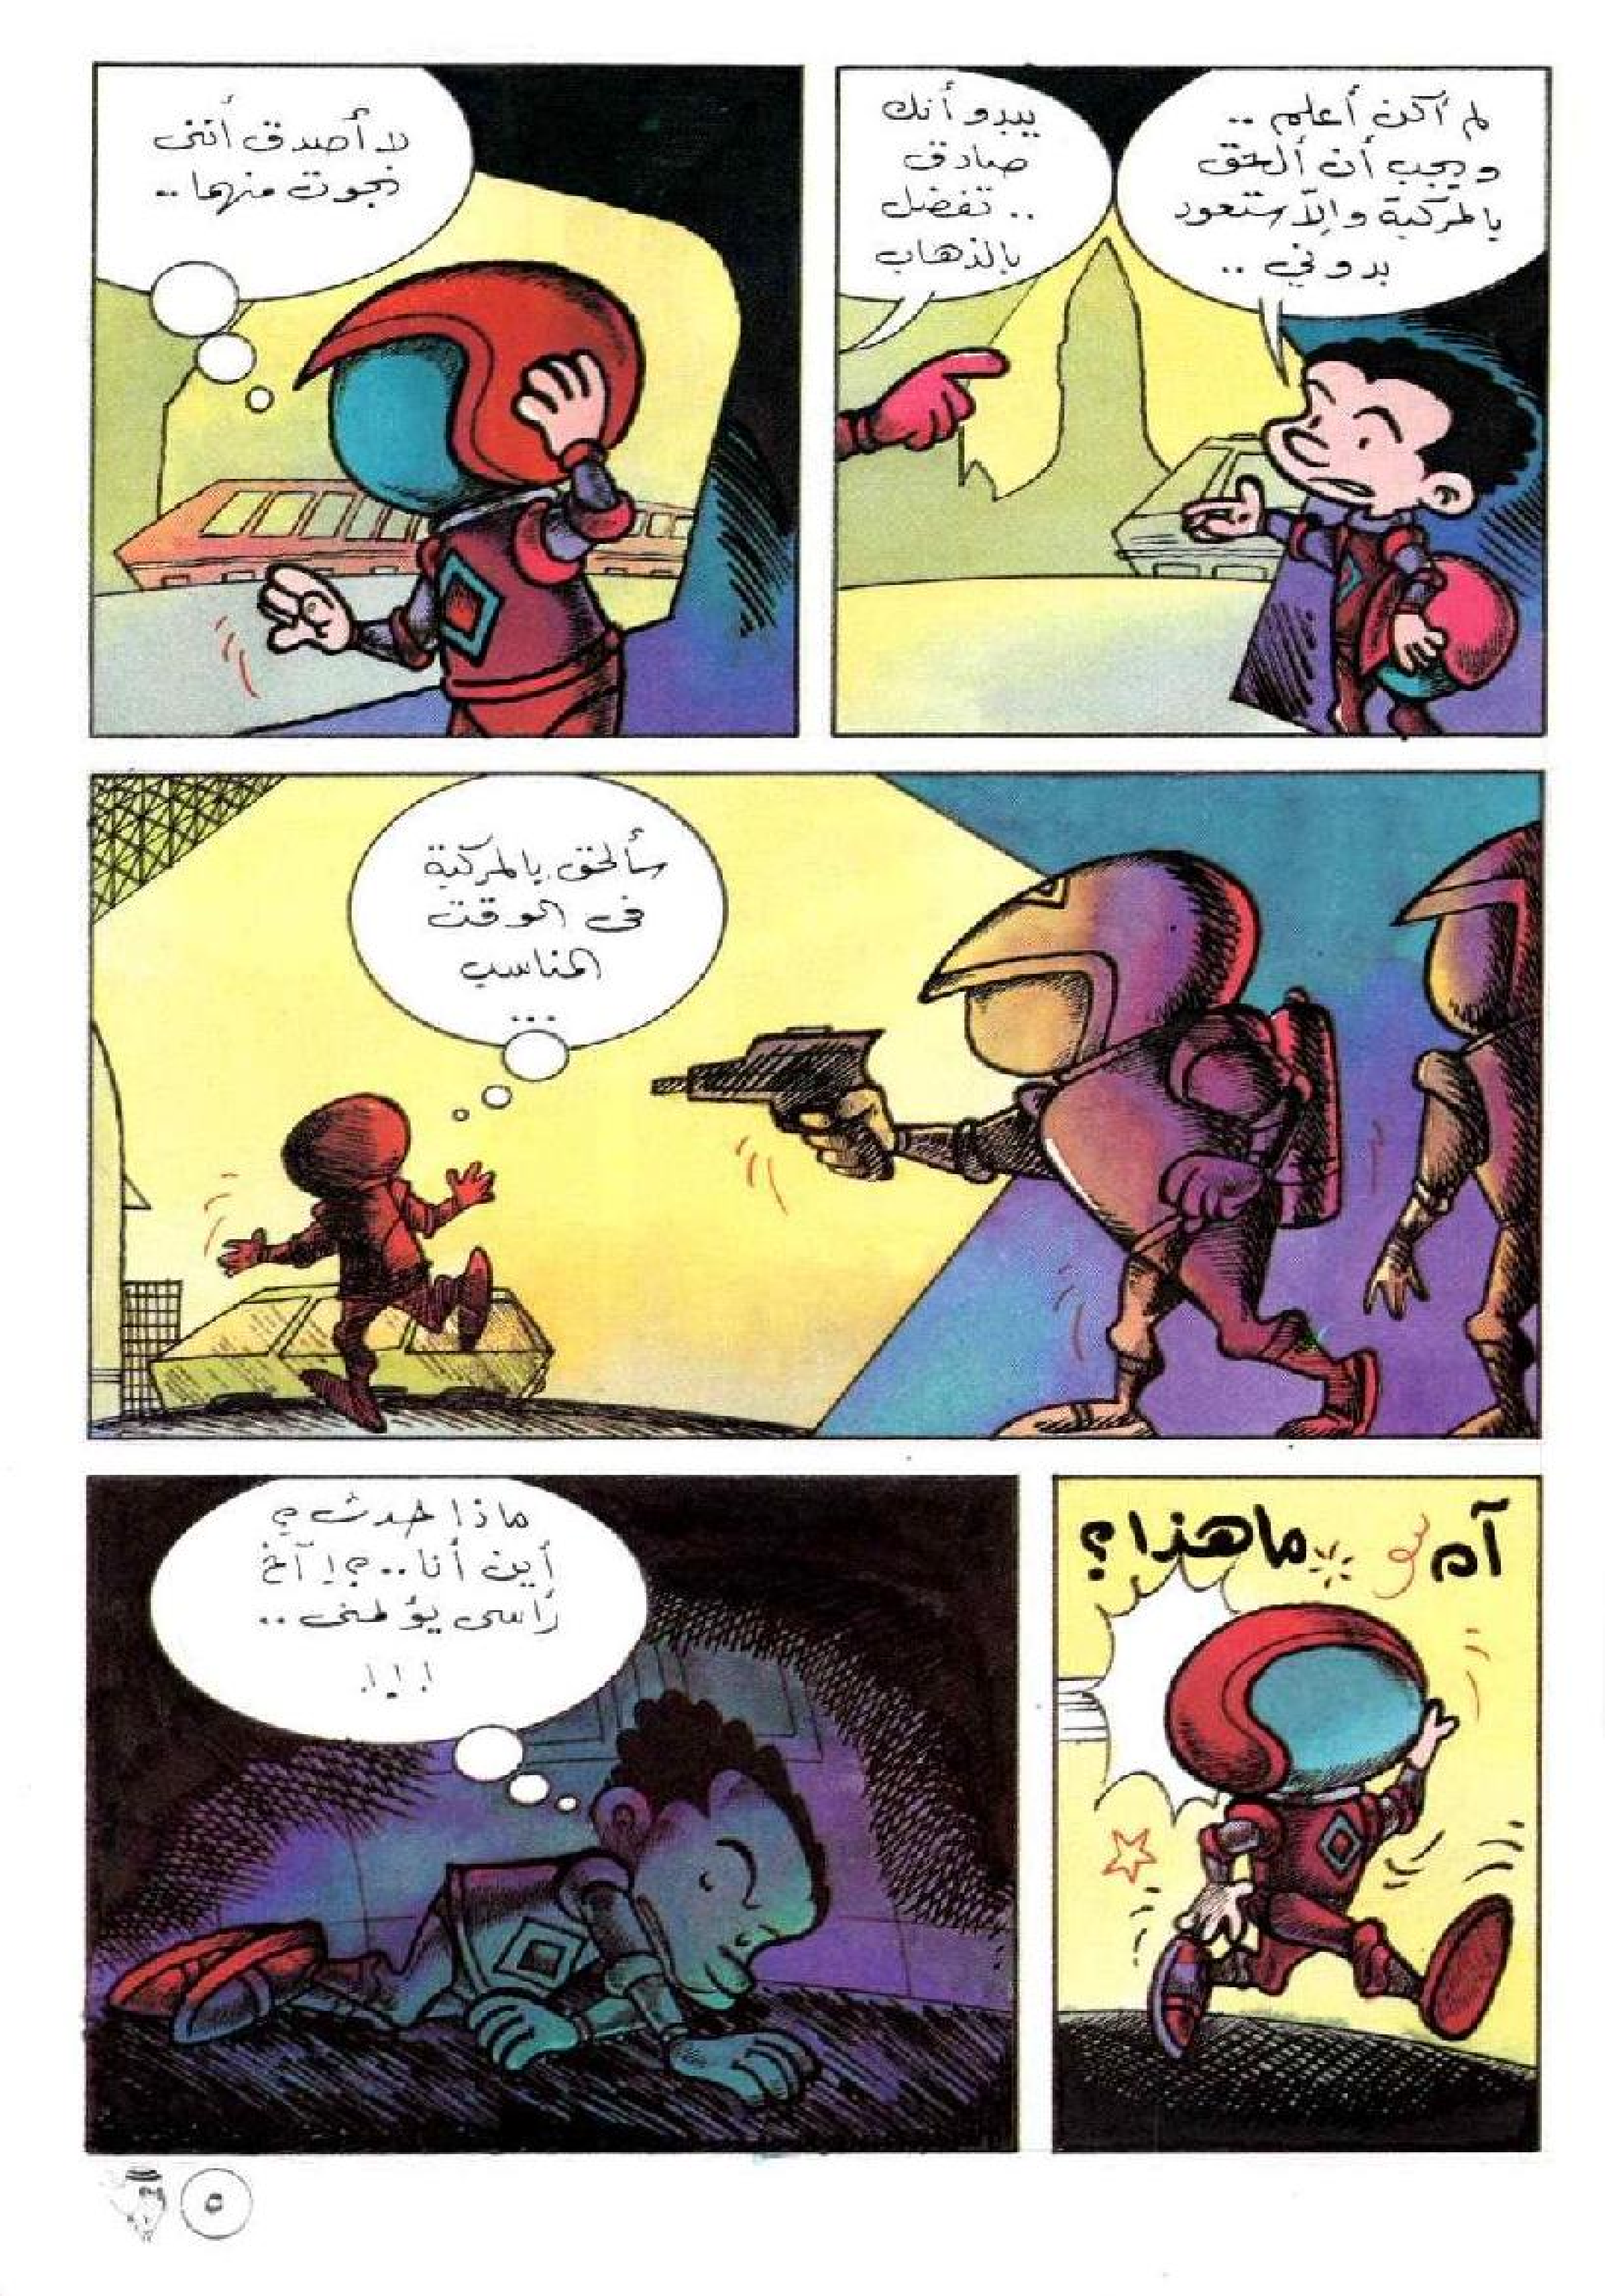 لم أكن أعلم ..
ويجب أن ألحق
بالمركبة وإلاّ ستعود
بدوني ..
يبدو أنك
صادق
.. تفضل
بالذهاب
لا أصدق أننى
نجوت منهما ..
سألحق بالمركبة
فى الوقت
المناسب
...
آه ما هذا؟
ماذا حدث؟
أين أنا..؟! آخ
رأسى يؤلمنى ..
!!!
٥